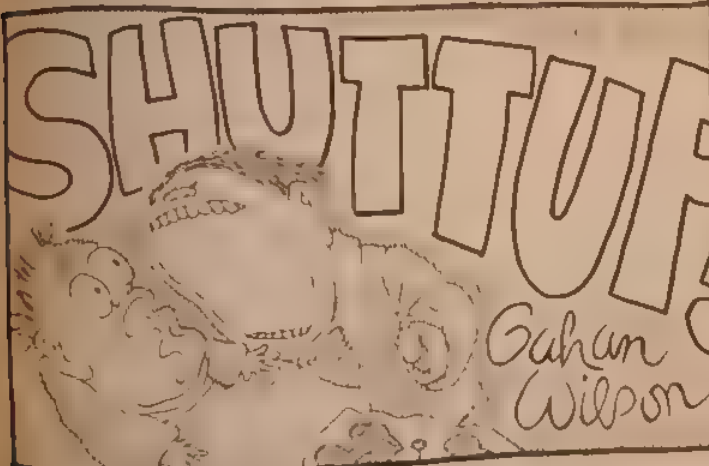 SHUTTUP!
Gahan
Wilson